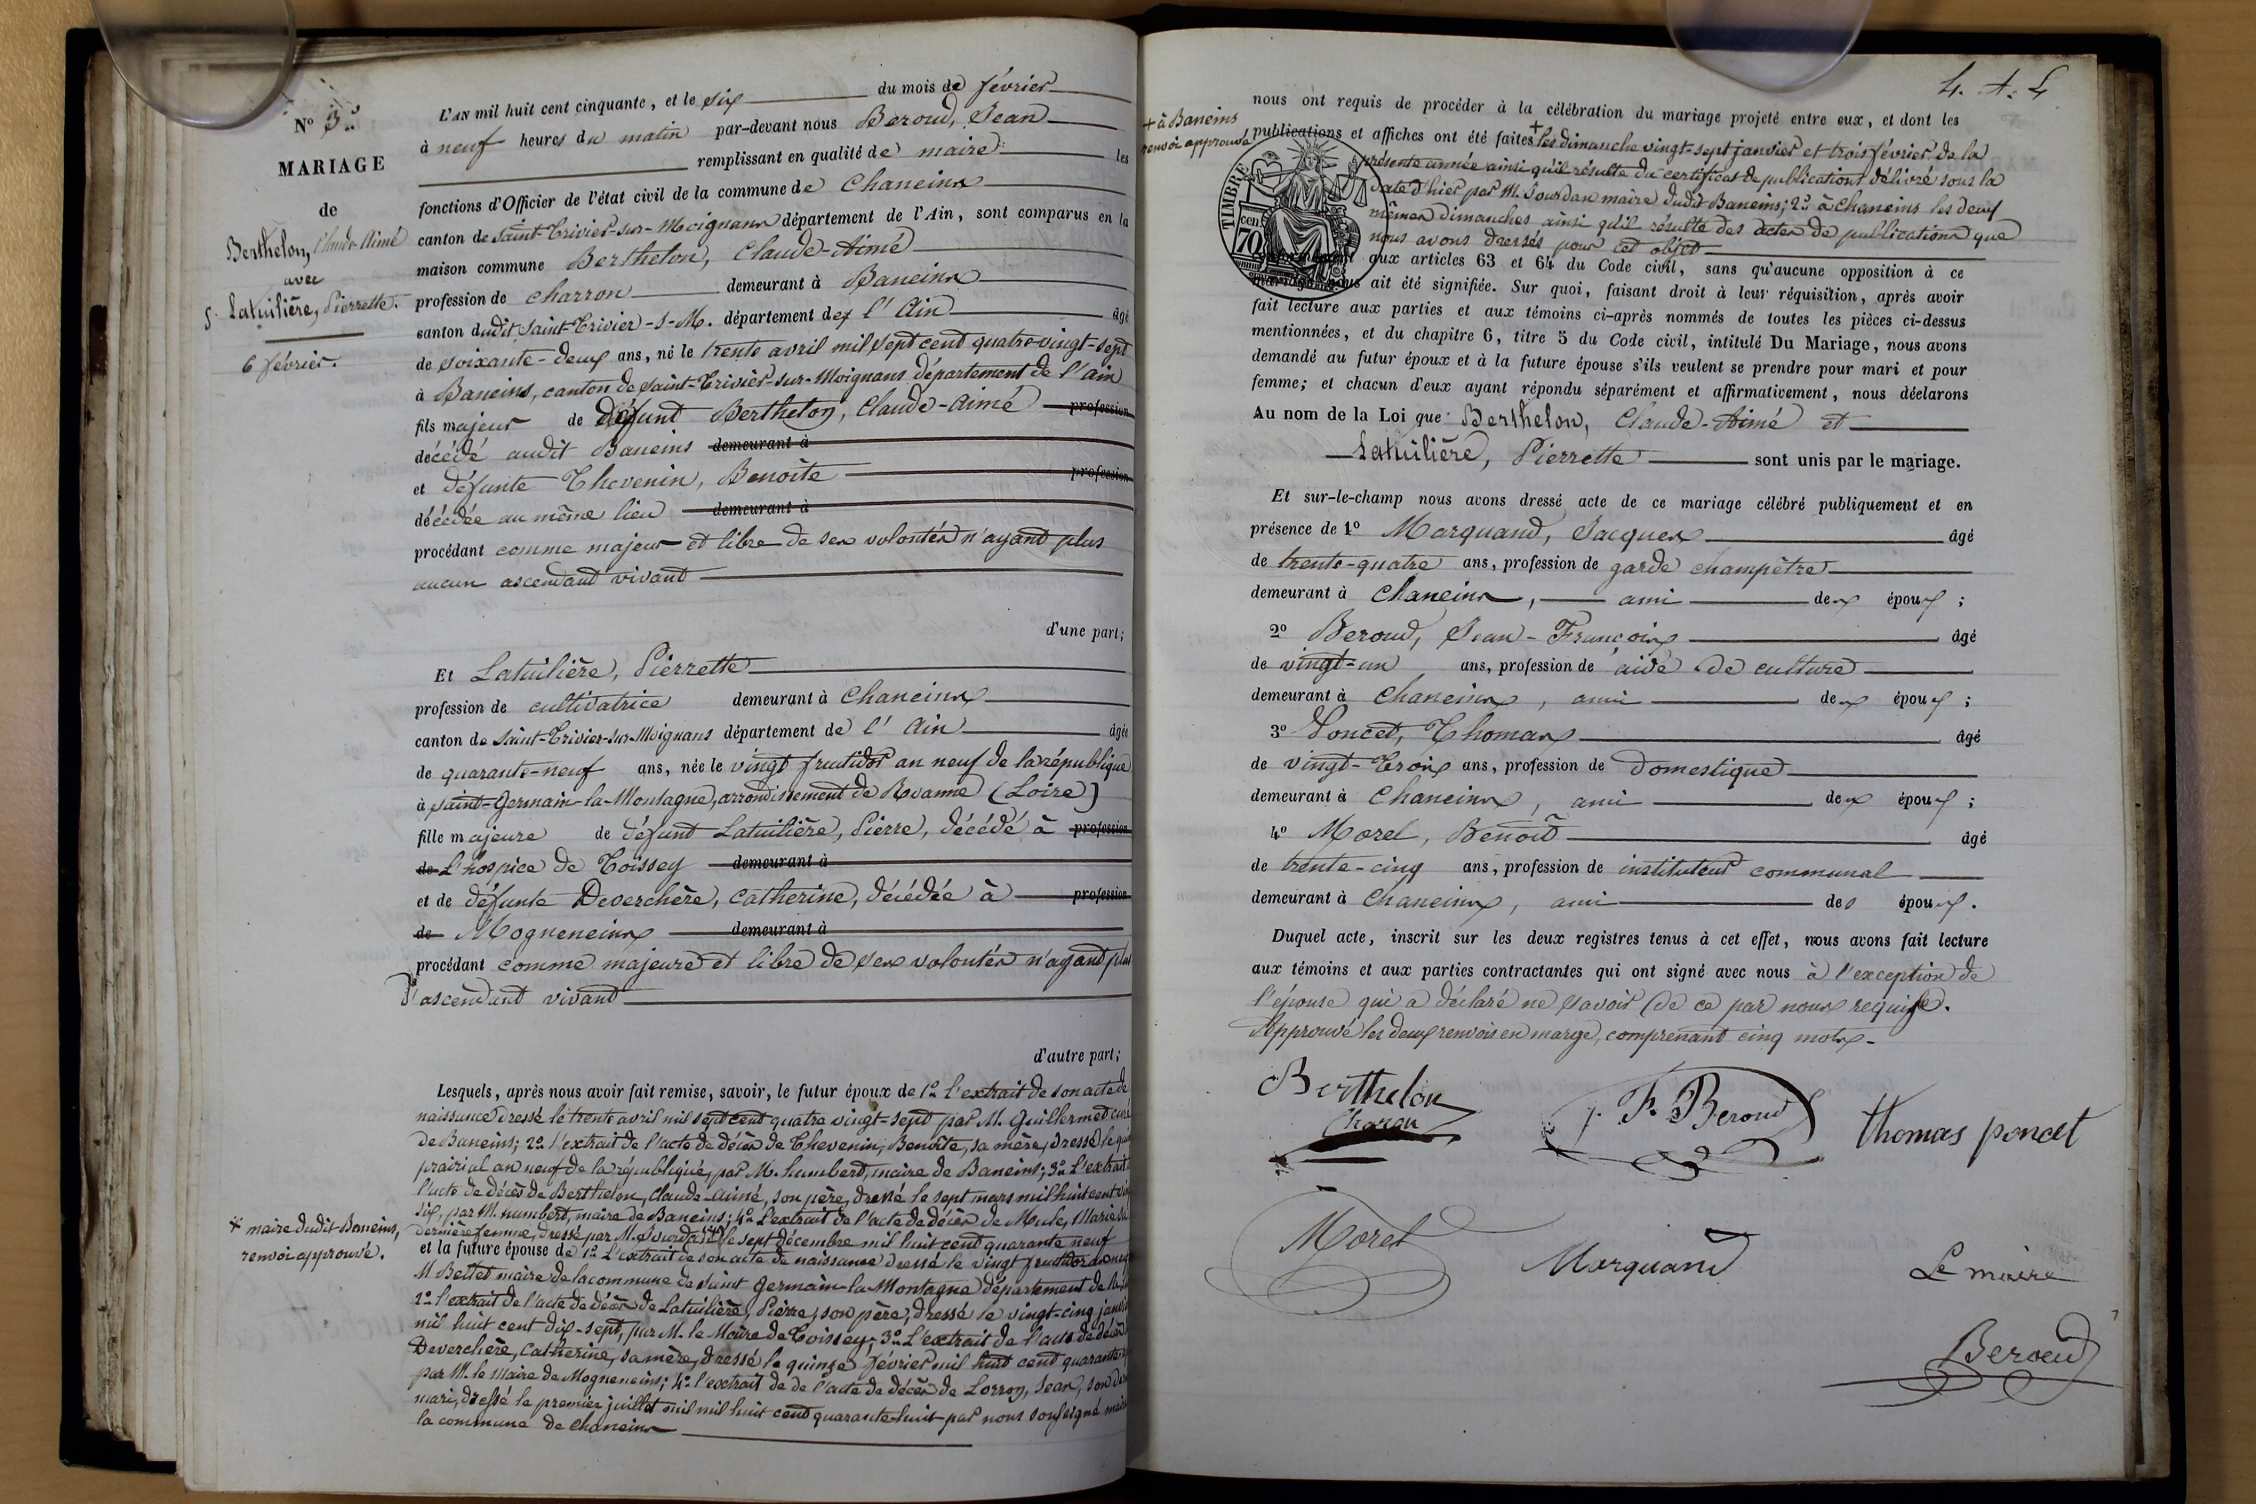 N° 3.
MARIAGE
de
Berthelon, Claude-Aimé
avec
Latuilière, Pierrette.
6 février.
L'AN mil huit cent cinquante, et le six du mois de février
à neuf heures du matin par-devant nous Beroud, Jean
remplissant en qualité de maire les
fonctions d'Officier de l'état civil de la commune de Chaneins
canton de Saint-Trivier-sur-Moignans département de l'Ain, sont comparus en la
maison commune Berthelon, Claude-Aimé
profession de charron demeurant à Baneins
canton dudit Saint-Trivier-s-M. département de l'Ain âgé
de soixante-deux ans, né le trente avril mil sept cent quatre-vingt-sept
à Baneins, canton de Saint-Trivier-sur-Moignans département de l'ain
fils majeur de défunt Berthelon, Claude-Aimé profession
décédé audit Baneins demeurant à
et défunte Thevenin, Benoite profession
décédée au même lieu demeurant à
procédant comme majeur et libre de ses volontés n'ayant plus
aucun ascendant vivant
d'une part;
Et Latuilière, Pierrette
profession de cultivatrice demeurant à Chaneins
canton de Saint-Trivier-sur-Moignans département de l'Ain âgée
de quarante-neuf ans, née le vingt fructidor an neuf de la république
à Saint-Germain-la-Montagne, arrondissement de Roanne (Loire)
fille majeure de défunt Latuilière, Pierre, décédé à profession
de L'hospice de Toissey demeurant à
et de défunte Deverchère, Catherine, décédée à profession
de Mogneneins demeurant à
procédant comme majeure et libre de ses volontés n'ayant plus
d'ascendant vivant
d'autre part;
Lesquels, après nous avoir fait remise, savoir, le futur époux de 1° l'extrait de son acte de
naissance dressé le trente avril mil sept cent quatre vingt-sept par M. Guillermet curé
de Baneins; 2° l'extrait de l'acte de décès de Thevenin, Benoite, sa mère, dressé le
prairial an neuf de la république, par M. humbert, maire de Baneins; 3° L'extrait
l'acte de décès de Berthelon, Claude-aimé, son père, dressé le sept mars mil huit cent
six, par M. humbert, maire de Baneins; 4° L'extrait de l'acte de décès de Mule, Marie sa
dernière femme, dressé par M. Jourdan * le sept décembre mil huit cent quarante neuf
* maire dudit Baneins,
renvoi approuvé.
et la future épouse de 1° L'extrait de son acte de naissance dressé le vingt fructidor an neuf
M Bettet maire de la commune de saint Germain la Montagne département de la
2° l'extrait de l'acte de décès de Latuilière, Pierre, son père, dressé le vingt-cinq janvier
mil huit cent dix-sept, par M. le Maire de Toissey; 3° L'extrait de l'acte de décès
Deverchère, Catherine, sa mère, dressé le quinze février mil huit cent quarante
par M. le Maire de Mogneneins; 4° l'extrait de de l'acte de décès de Lorron, Jean, son
mari, dressé le premier juillet mil mil huit cent quarante-huit par nous soussigné maire
la commune de Chaneins
4. A. 4
nous ont requis de procéder à la célébration du mariage projeté entre eux, et dont les
+ à Baneins
renvoi approuvé
publications et affiches ont été faites + les dimanche vingt-sept janvier et trois février de la
présente année ainsi qu'il résulte du certificat de publications délivré sous la
date d'hier par M. Jourdan maire dudit Baneins; 2° à Chaneins les deux
mêmes dimanches ainsi qu'il résulte des actes de publications que
nous avons dressés pour cet objet
TIMBRE
70
cen
aux articles 63 et 64 du Code civil, sans qu'aucune opposition à ce
mariage nous ait été signifiée. Sur quoi, faisant droit à leur réquisition, après avoir
fait lecture aux parties et aux témoins ci-après nommés de toutes les pièces ci-dessus
mentionnées, et du chapitre 6, titre 5 du Code civil, intitulé Du Mariage, nous avons
demandé au futur époux et à la future épouse s'ils veulent se prendre pour mari et pour
femme; et chacun d'eux ayant répondu séparément et affirmativement, nous déclarons
Au nom de la Loi que Berthelon, Claude-Aimé et
Latuilière, Pierrette sont unis par le mariage.
Et sur-le-champ nous avons dressé acte de ce mariage célébré publiquement et en
présence de 1° Marquand, Jacques âgé
de trente-quatre ans, profession de garde champêtre
demeurant à Chaneins, ami des époux;
2° Beroud, Jean-François âgé
de vingt-un ans, profession de aide de culture
demeurant à Chaneins, ami des époux;
3° Poncet, Thomas âgé
de vingt-trois ans, profession de domestique
demeurant à Chaneins, ami des époux;
4° Morel, Benoît âgé
de trente-cinq ans, profession de instituteur communal
demeurant à Chaneins, ami des époux.
Duquel acte, inscrit sur les deux registres tenus à cet effet, nous avons fait lecture
aux témoins et aux parties contractantes qui ont signé avec nous à l'exception de
l'épouse qui a déclaré ne savoir de ce par nous requise.
Approuvé les deux renvois en marge, comprenant cinq mots.
Berthelon
Charon
J. F. Beroud
thomas poncet
Morel
Marquand
Le maire
Beroud